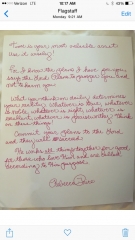 Verizon LTE
10:17 AM
43%
Flagstaff
Monday 9:21 AM
Edit
Time is your most valuable asset
Use it wisely!
For I know the plans I have for you,
says the Lord. Plans to prosper you and
not to harm you.
What you think on
your reality. Whatever is true, whatever
is noble, whatever is right, whatever is
excellent, whatever is praiseworthy. Think
on these things!
Commit your plans to the Lord
and they will succeed!
He works all things together for good
for those who love Him and are called
according to His purposes.
Rebecca